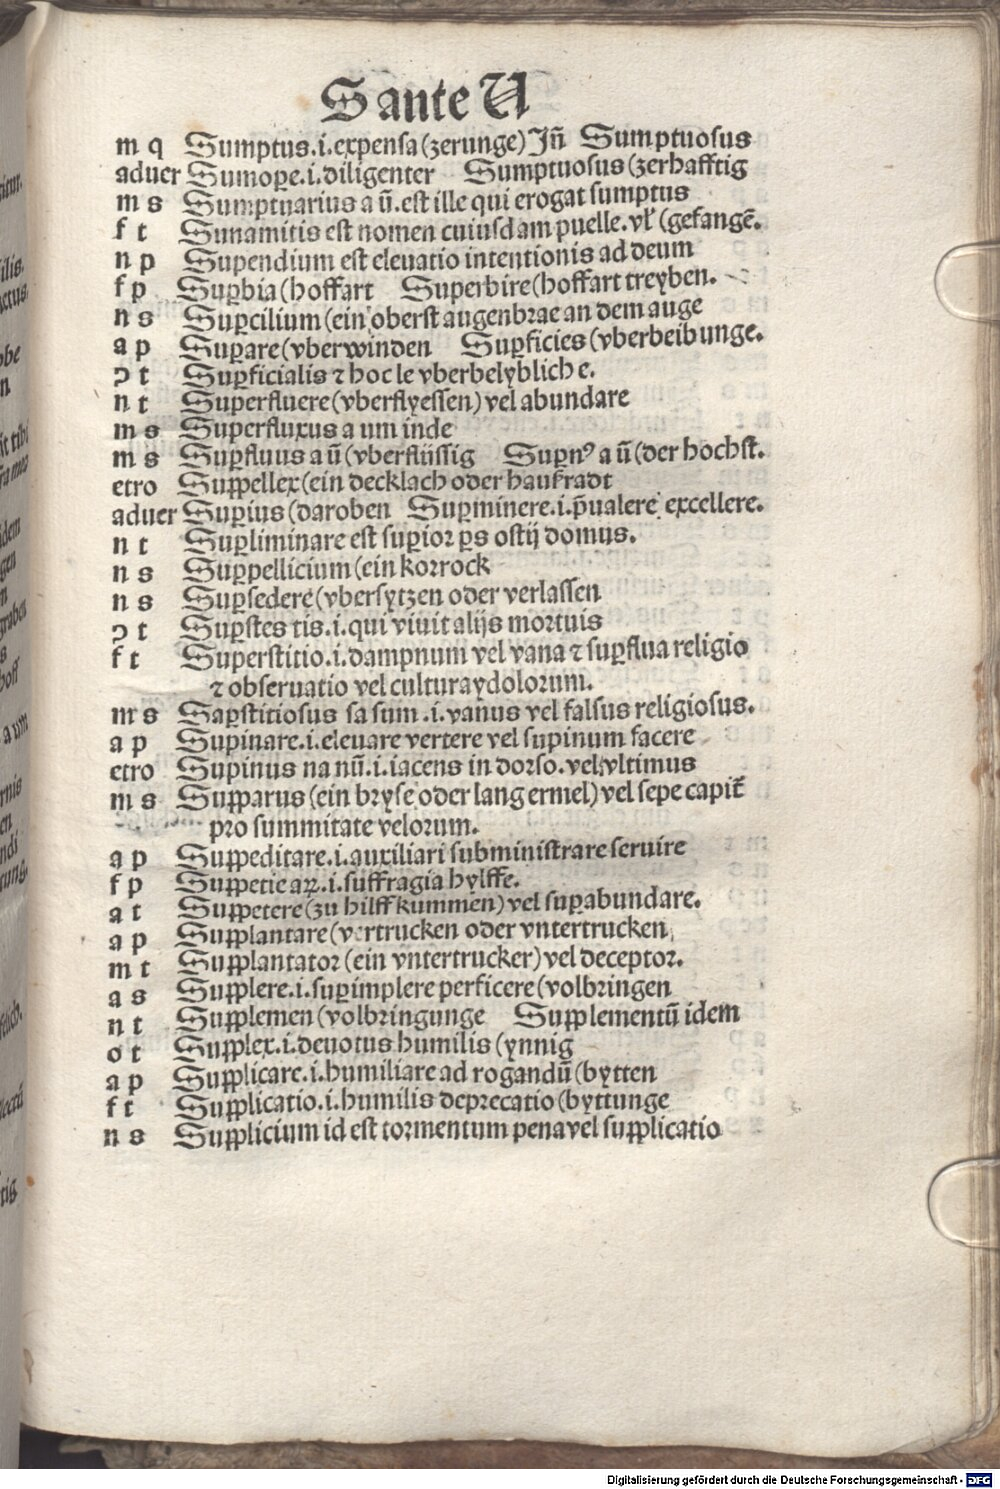 S ante U
m q Sumptus.i.expensa (zerunge) Jñ Sumptuosus
aduer Sumoꝑe.i.diligenter Sumptuosus (zerhafftig
m s Sumptuarius a ū.est ille qui erogat sumptus
f t Sunamitis est nomen cuiusdam puelle.vł (gefangē.
n p Supendium est eleuatio intentionis ad deum
f p Suꝑbia (hoffart Superbire (hoffart treyben.
n s Suꝑcilium (ein oberst augenbrae an dem auge
a p Suꝑare (vberwinden Suꝑficies (vberbeibunge.
ɔ t Suꝑficialis ⁊ hoc le vberbelybliche.
n t Superfluere (vberflyessen) vel abundare
m s Superfluxus a um inde
m s Suꝑfluus a ū (vberflüssig Suꝑnꝰ a ū (der hochst.
etro Suꝑpellex (ein decklach oder hauſzradt
aduer Suꝑius (daroben Suꝑminere.i.p̄ualere excellere.
n t Suꝑliminare est suꝑior ꝑs ostij domus.
n s Suꝑpellicium (ein korrock
n s Suꝑsedere (vbersytzen oder verlassen
ɔ t Suꝑstes tis.i.qui viuit alijs mortuis
f t Superstitio.i.dampnum vel vana ⁊ suꝑflua religio
⁊ obseruatio vel cultura ydolorum.
m s Saꝑstitiosus sa sum.i.vanus vel falsus religiosus.
a p Supinare.i.eleuare vertere vel supinum facere
etro Supinus na nū.i.iacens in dorso.vel vltimus
m s Supparus (ein bryse oder lang ermel) vel sepe capit̄
pro summitate velorum.
a p Suppeditare.i.auxiliari subministrare seruire
f p Suppetie aꝝ.i.suffragia hylffe.
a t Suppetere (zu hilff kummen) vel suꝑabundare.
a p Supplantare (vertrucken oder vntertrucken
m t Supplantator (ein vntertrucker) vel deceptor.
a s Supplere.i.suꝑimplere perficere (volbringen
n t Supplemen (volbringunge Supplementū idem
o t Supplex.i.deuotus humilis (ynnig
a p Supplicare.i.humiliare ad rogandū (bytten
f t Supplicatio.i.humilis deprecatio (byttunge
n s Supplicium id est tormentum pena vel supplicatio
Digitalisierung gefördert durch die Deutsche Forschungsgemeinschaft - DFG